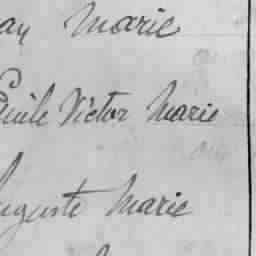 Marie
Emile Victor Marie
Auguste Marie